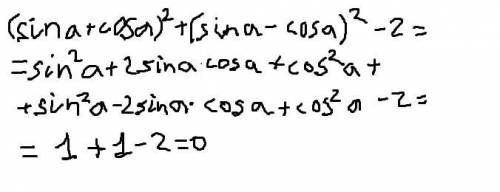 (sina+cosa)²+(sina-cosa)²-2=
=sin²a+2sina·cosa+cos²a+
+sin²a-2sina·cosa+cos²a-2=
=1+1-2=0